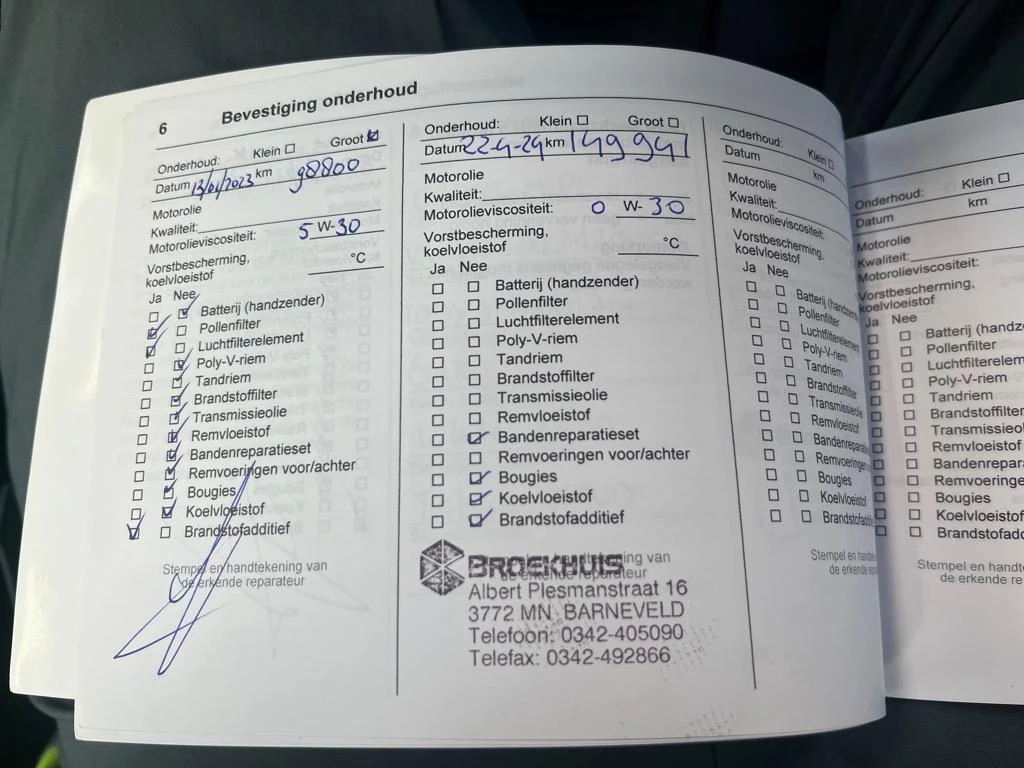 6 Bevestiging onderhoud
Onderhoud: Klein Groot
Datum 13/01/2023 km 98800
Motorolie
Kwaliteit:
Motorolieviscositeit: 5 W-30
Vorstbescherming,
koelvloeistof °C
Ja Nee
Batterij (handzender)
Pollenfilter
Luchtfilterelement
Poly-V-riem
Tandriem
Brandstoffilter
Transmissieolie
Remvloeistof
Bandenreparatieset
Remvoeringen voor/achter
Bougies
Koelvloeistof
Brandstofadditief
Stempel en handtekening van
de erkende reparateur
Onderhoud: Klein Groot
Datum 22-4-24 km 149941
Motorolie
Kwaliteit:
Motorolieviscositeit: 0 W-30
Vorstbescherming,
koelvloeistof °C
Ja Nee
Batterij (handzender)
Pollenfilter
Luchtfilterelement
Poly-V-riem
Tandriem
Brandstoffilter
Transmissieolie
Remvloeistof
Bandenreparatieset
Remvoeringen voor/achter
Bougies
Koelvloeistof
Brandstofadditief
handtekening van
de erkende reparateur
BROEKHUIS
Albert Plesmanstraat 16
3772 MN BARNEVELD
Telefoon: 0342-405090
Telefax: 0342-492866
Onderhoud: Klein
Datum km
Motorolie
Kwaliteit:
Motorolieviscositeit:
Vorstbescherming,
koelvloeistof
Ja Nee
Batterij (handzend
Pollenfilter
Luchtfilterelement
Poly-V-riem
Tandriem
Brandstoffilter
Transmissieolie
Remvloeistof
Bandenreparati
Remvoeringen
Bougies
Koelvloeistof
Brandstofadd
Stempel en handte
de erkende repa
Onderhoud: Klein
Datum km
Motorolie
Kwaliteit:
Motorolieviscositeit:
Vorstbescherming,
koelvloeistof
Ja Nee
Batterij (handze
Pollenfilter
Luchtfilterelem
Poly-V-riem
Tandriem
Brandstoffilter
Transmissieo
Remvloeistof
Bandenrepar
Remvoeringe
Bougies
Koelvloeistof
Brandstofadd
Stempel en handte
de erkende re